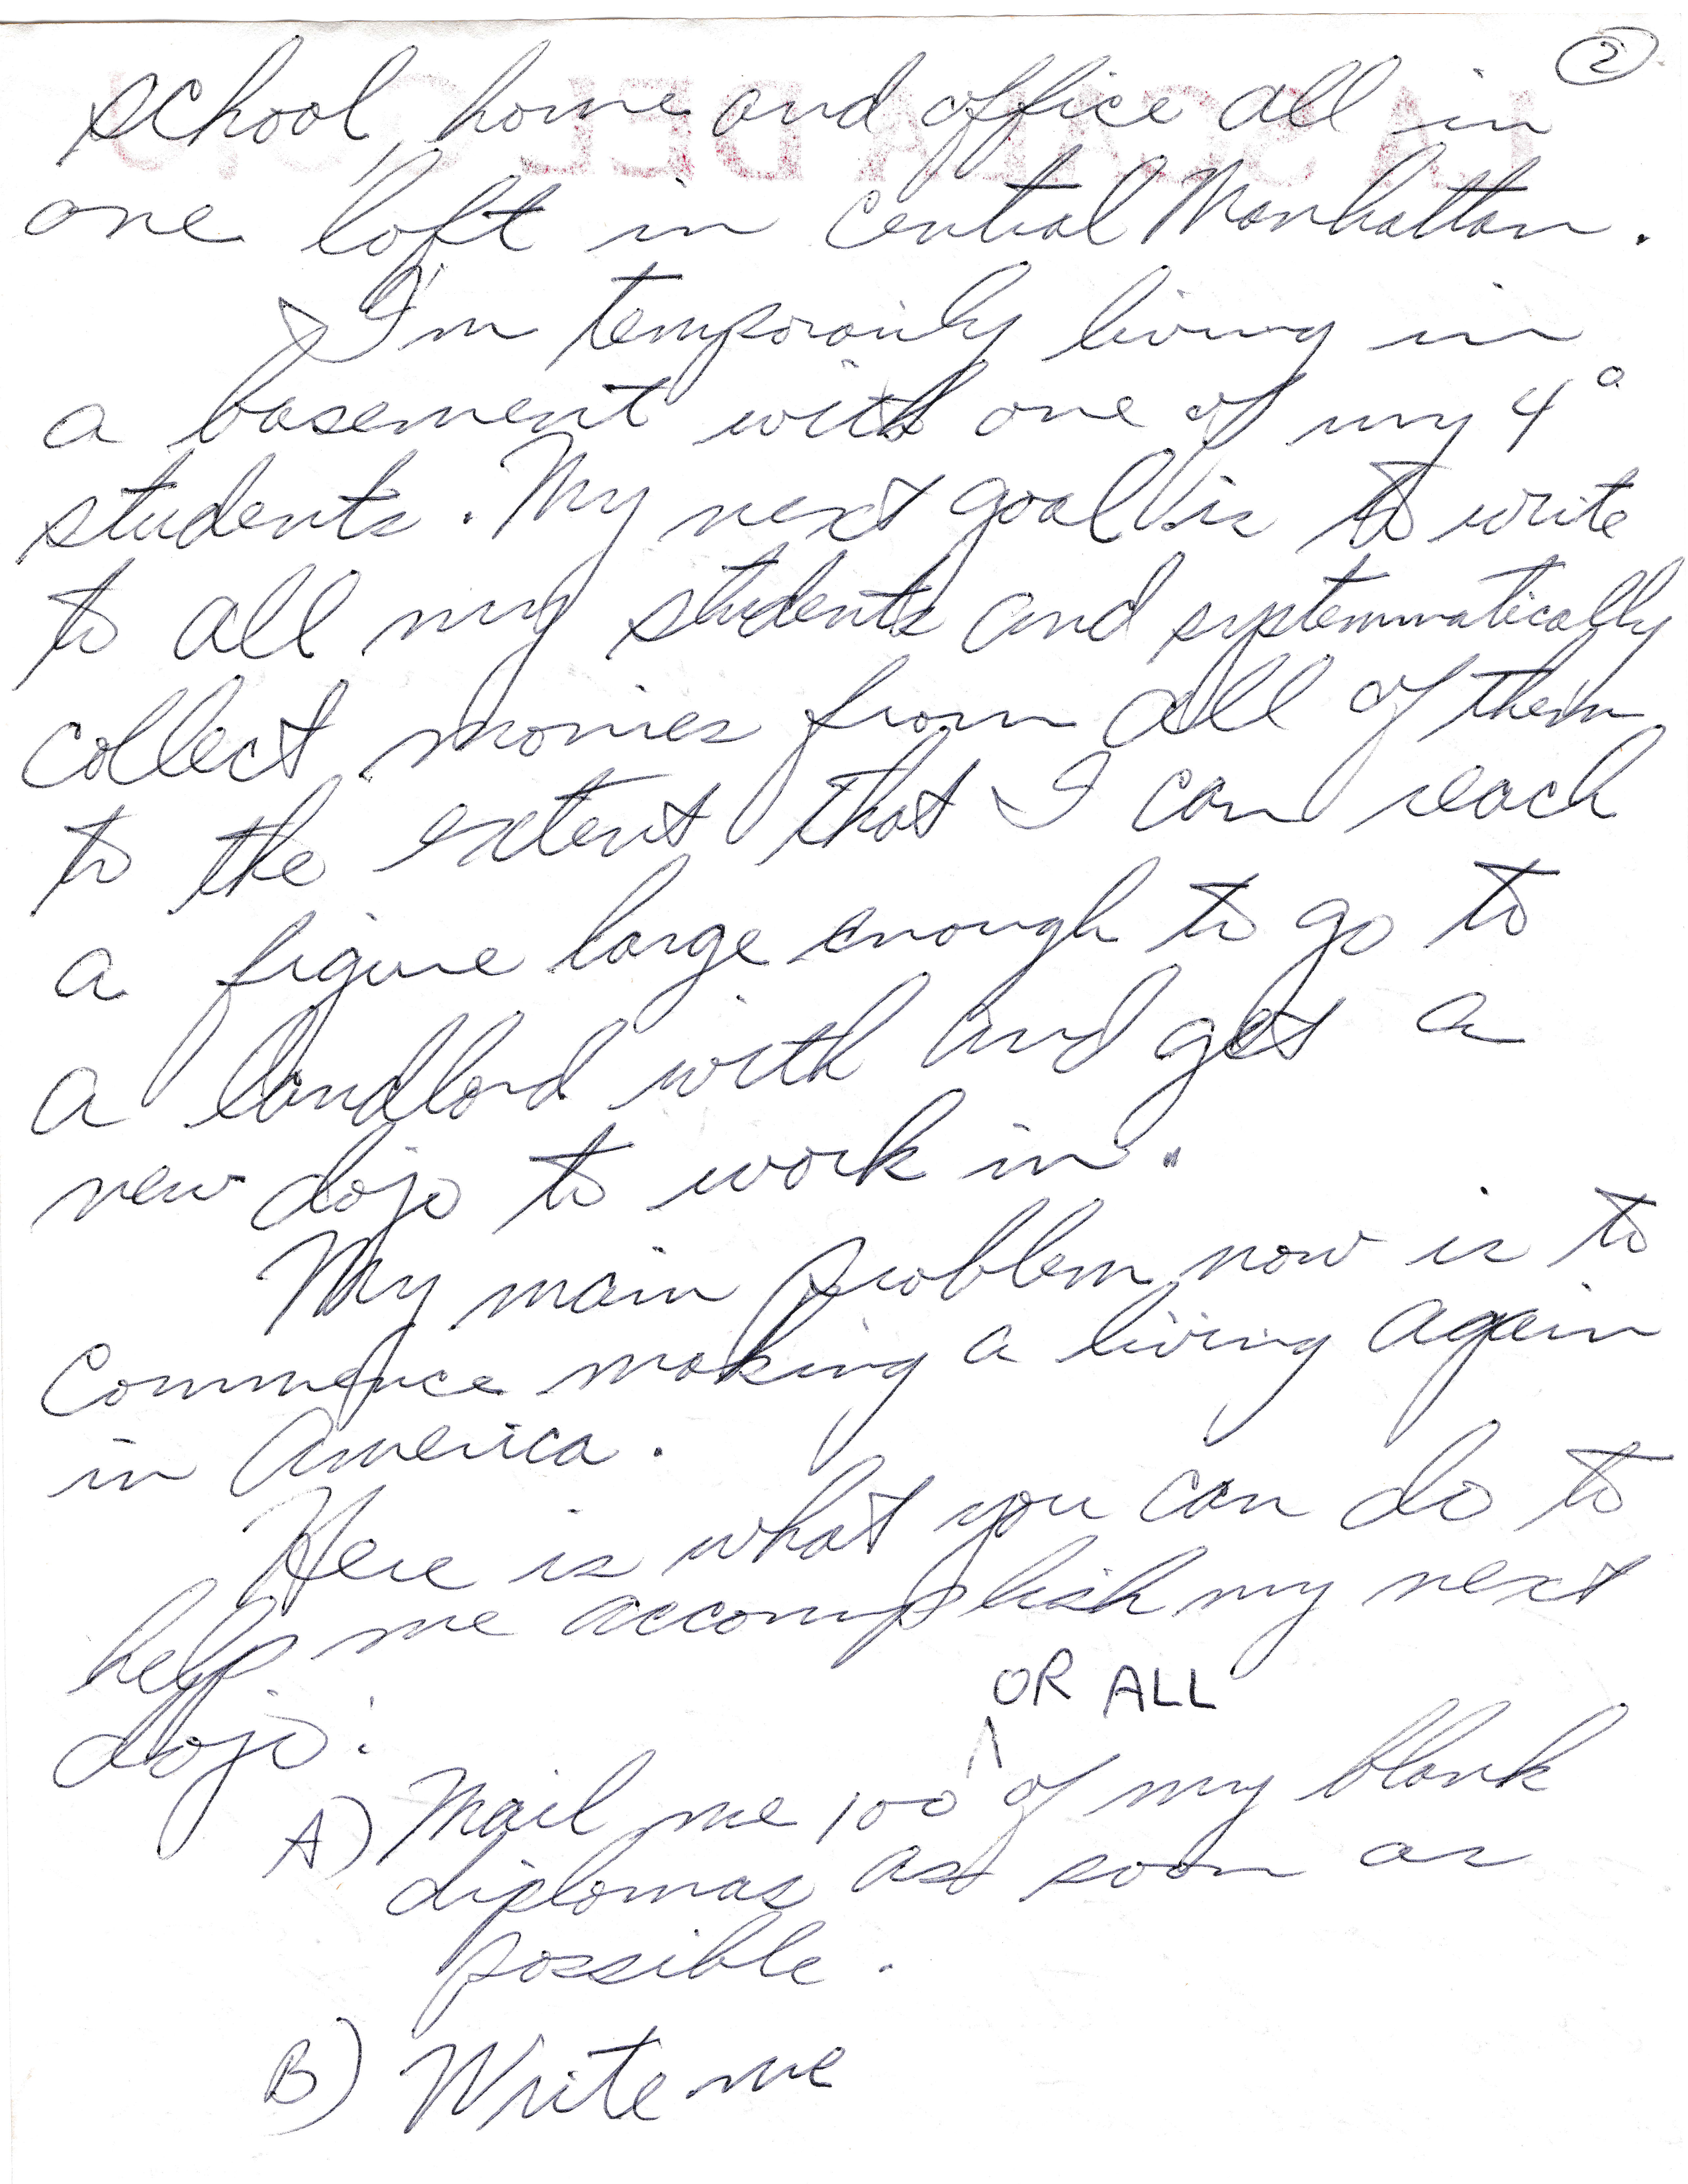 ②
school, home and office all in
one loft in central Manhattan.
I'm temporarily living in
a basement with one of my 4°
students. My next goal is to write
to all my students and systemmatically
collect monies from all of them,
to the extent that I can reach
a figure large enough to go to
a landlord with and get a
new dojo to work in.
My main problem now is to
commence making a living again
in America.
Here is what you can do to
help me accomplish my next
dojo:
OR ALL
A) Mail me 100 ^ of my blank
diplomas as soon as
possible.
B) Write me